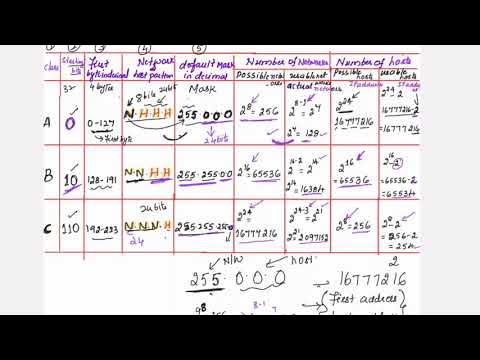 ① ② ③ ④ ⑤
class
starting bits
First byte in decimal
Network host portion
default Mask in decimal
Number of Networks
Possible
usable net
Number of hosts
Possible hosts
usable hosts
32
4 bytes
8 bits 24 bits
Mask
actual networks
IP address
2^24-2
A
0
0-127
First byte
N.H.H.H
255.0.0.0
24 bits
2^8=256
2^8-1=2^7
2^7=128
2^24
16777216
16777216-2
=16777214
B
10
128-191
N.N.H.H
255.255.0.0
2^16=65536
2^16-2=2^14
2^14=16384
2^16
=65536
2^16-2
=65536-2
=65534
C
110
192-223
24 bits
N.N.N.H
24
255.255.255.0
2^24
16777216
2^24-3=2^21
2^21=2097152
2^8=256
2^8-2
=256-2
=254
2
N/W
host
255.0.0.0
16777216
(First address)